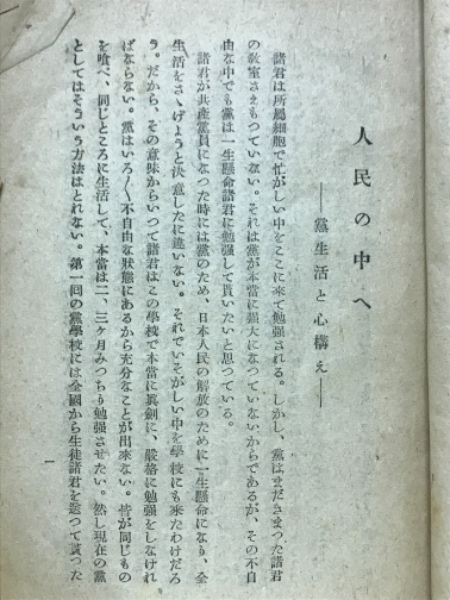 人民の中へ
――黨生活と心構え――
諸君は所屬細胞で忙がしい中をここに來て勉强される。しかし、黨はまださまつた諸君
の敎室さえもつていない。それは黨が本當に强大になつていないからであるが、その不自
由な中でも黨は一生懸命諸君に勉强して貰いたいと思つている。
諸君が共產黨員になつた時には黨のため、日本人民の解放のために一生懸命になり、全
生活をさゝげようと決意したに違いない。それでいそがしい中を學校にも來たわけだろ
う。だから、その意味からいつて諸君はこの學校で本當に眞劍に、嚴格に勉强をしなけれ
ばならない。黨はいろ〱不自由な狀態にあるから充分なことが出來ない。皆が同じもの
を喰べ、同じところに生活して、本當は二、三ヶ月みつちり勉强させたい。然し現在の黨
としてはそういう方法はとれない。第一回の黨學校には全國から生徒諸君を送つて貰つた
一